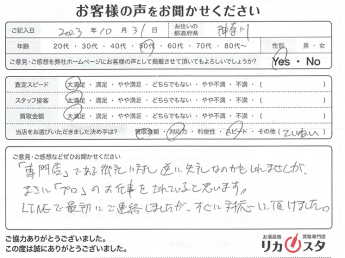 お客様の声をお聞かせください
ご記入日 2023年10月31日 お住いの都道府県 神奈川
年齢 20代・30代・40代・50代・60代・70代・80代～ 性別 男・女
ご意見・ご感想を弊社ホームページにお客様の声として掲載させて頂いてもよろしいでしょうか? Yes・No
査定スピード 大満足・満足・やや満足・どちらでもない・やや不満・不満・( )
スタッフ接客 大満足・満足・やや満足・どちらでもない・やや不満・不満・( )
買取金額 大満足・満足・やや満足・どちらでもない・やや不満・不満・( )
当店をお選びいただきました決め手は? 買取金額・対応力・利便性・スピード・その他(ていねい)
ご意見・ご感想などぜひお聞かせください
「専門店」である御社に対し逆に失礼なのかもしれませんが、
まさに「プロ」のお仕事をされていると思います。
LINEで最初にご連絡しましたが、すぐに対応して頂けました。
ご協力ありがとうございました。
この度は誠にありがとうございました。
お酒高価買取専門店
リカスタ